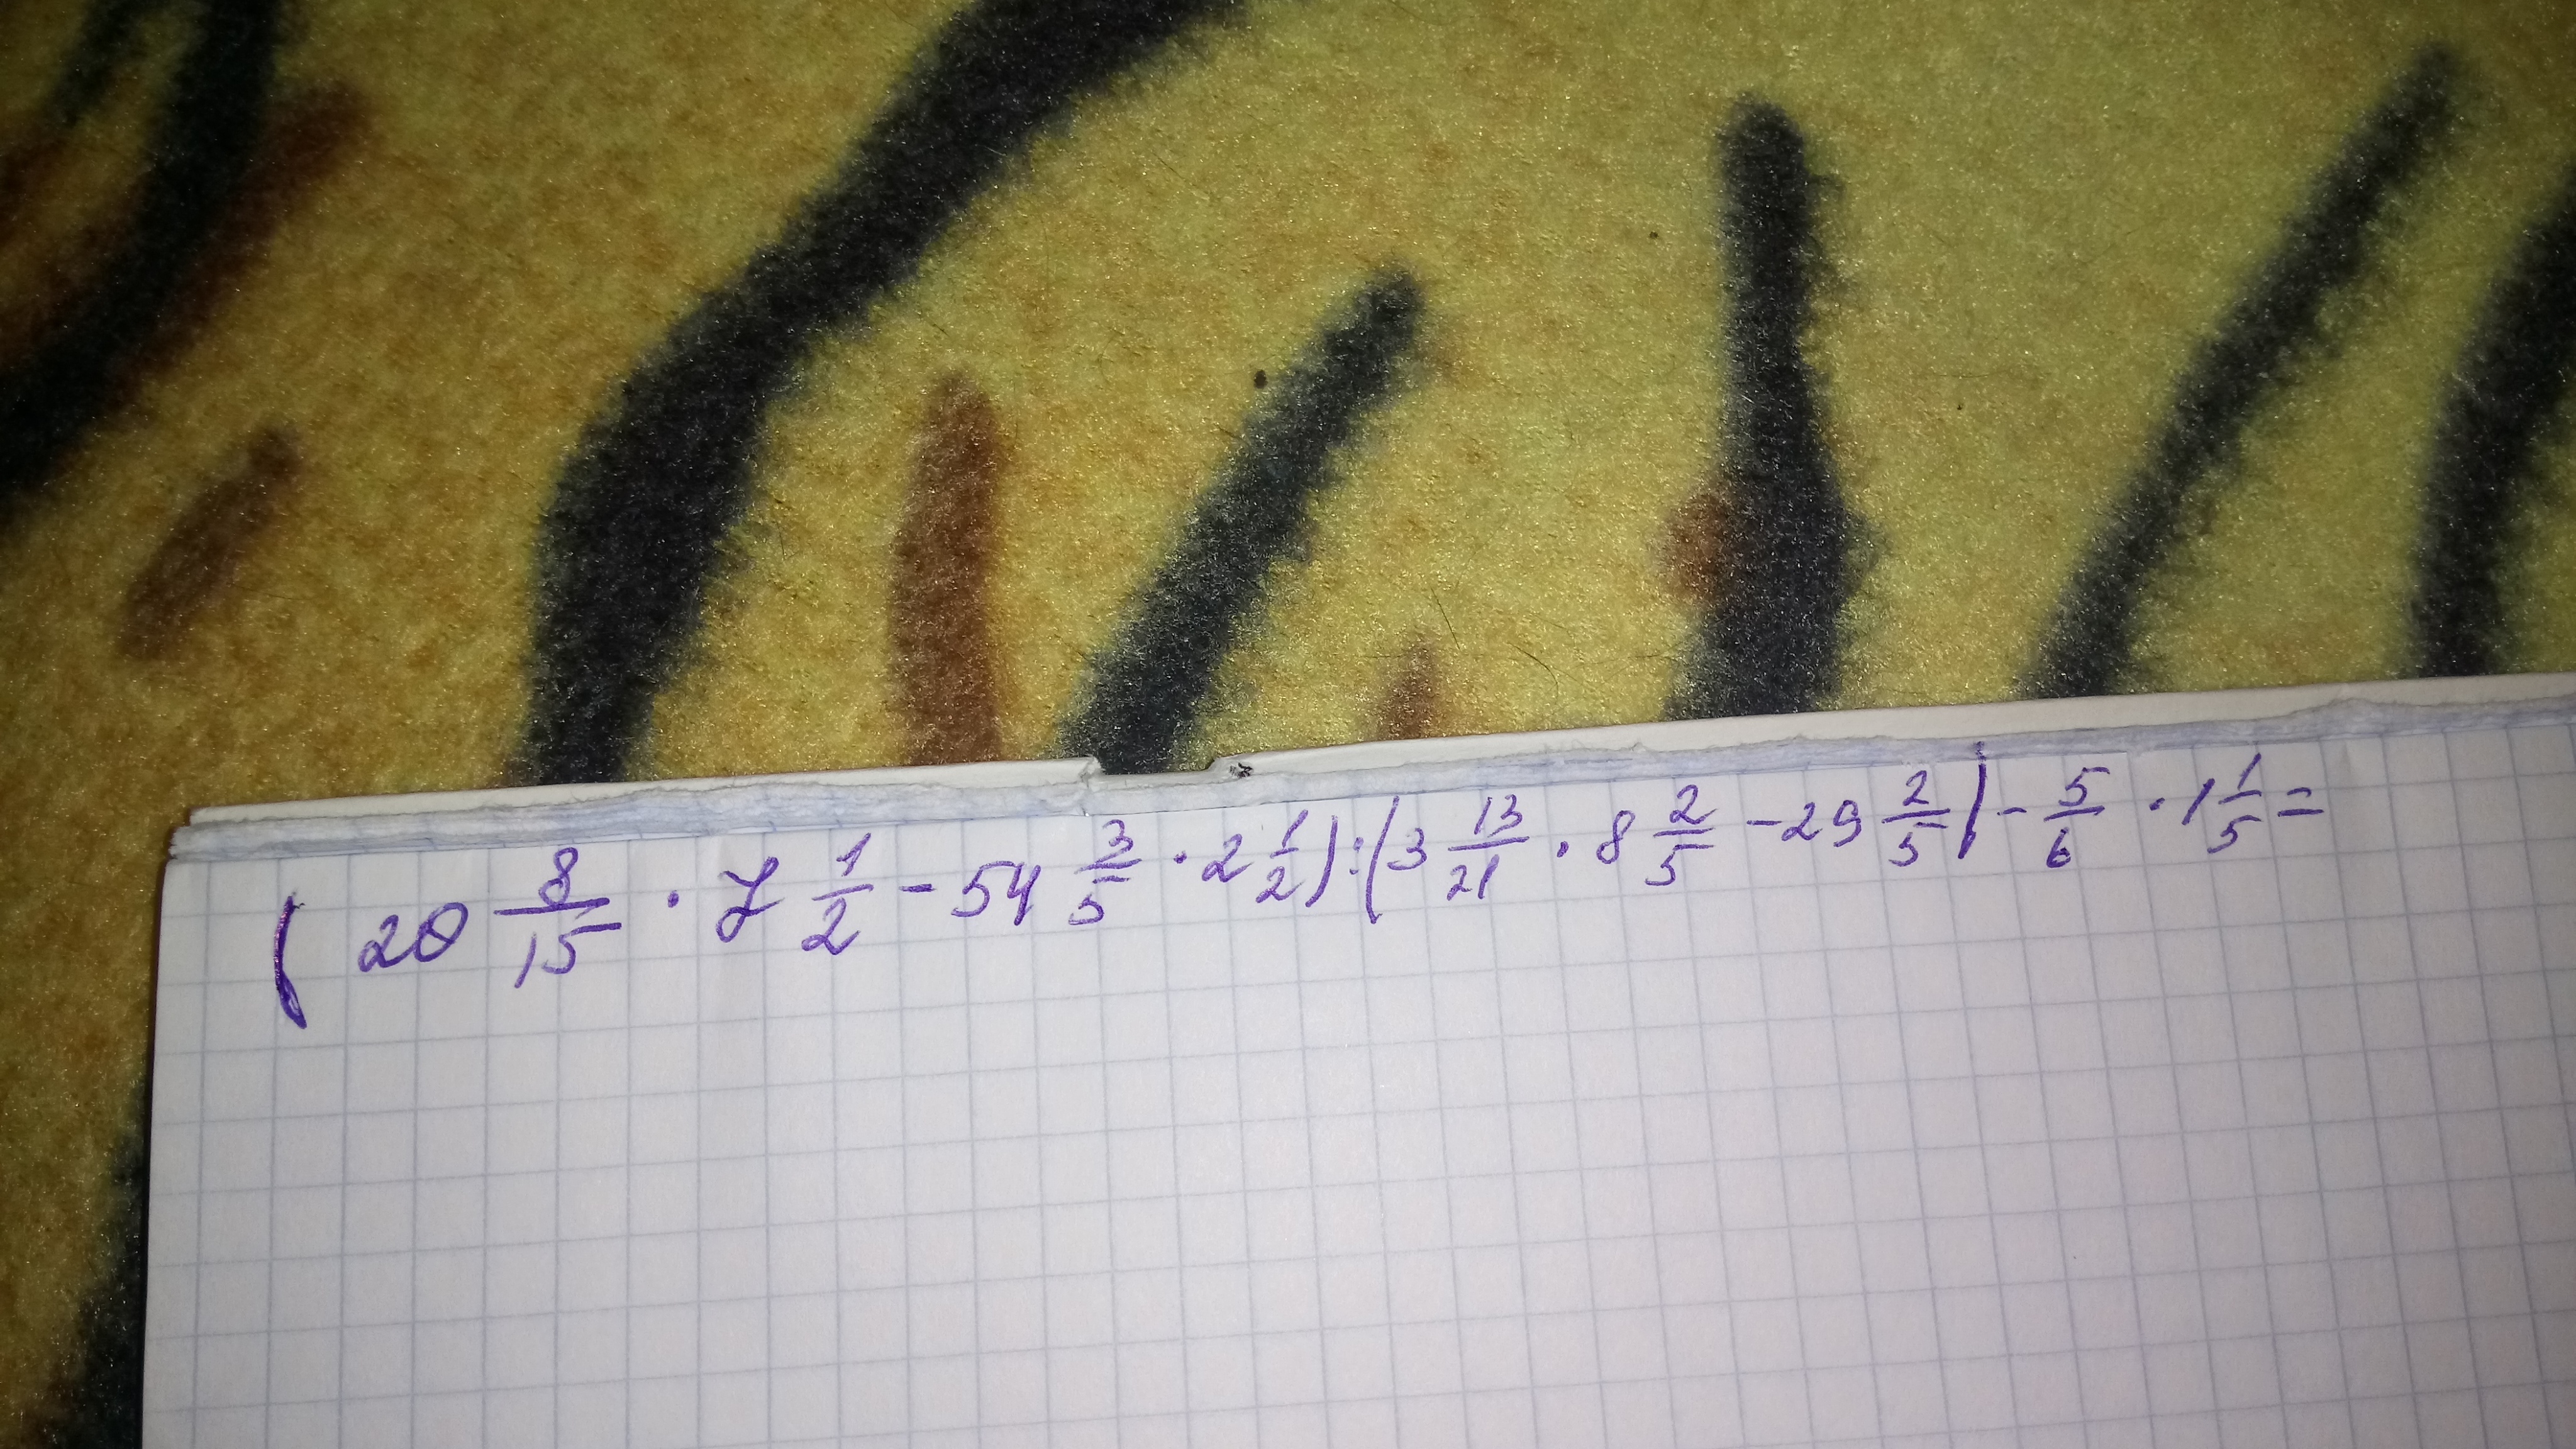 (20 8/15 · 7 1/2 - 54 3/5 · 2 1/2) : (3 13/21 · 8 2/5 - 29 2/5) - 5/6 · 1 1/5 =